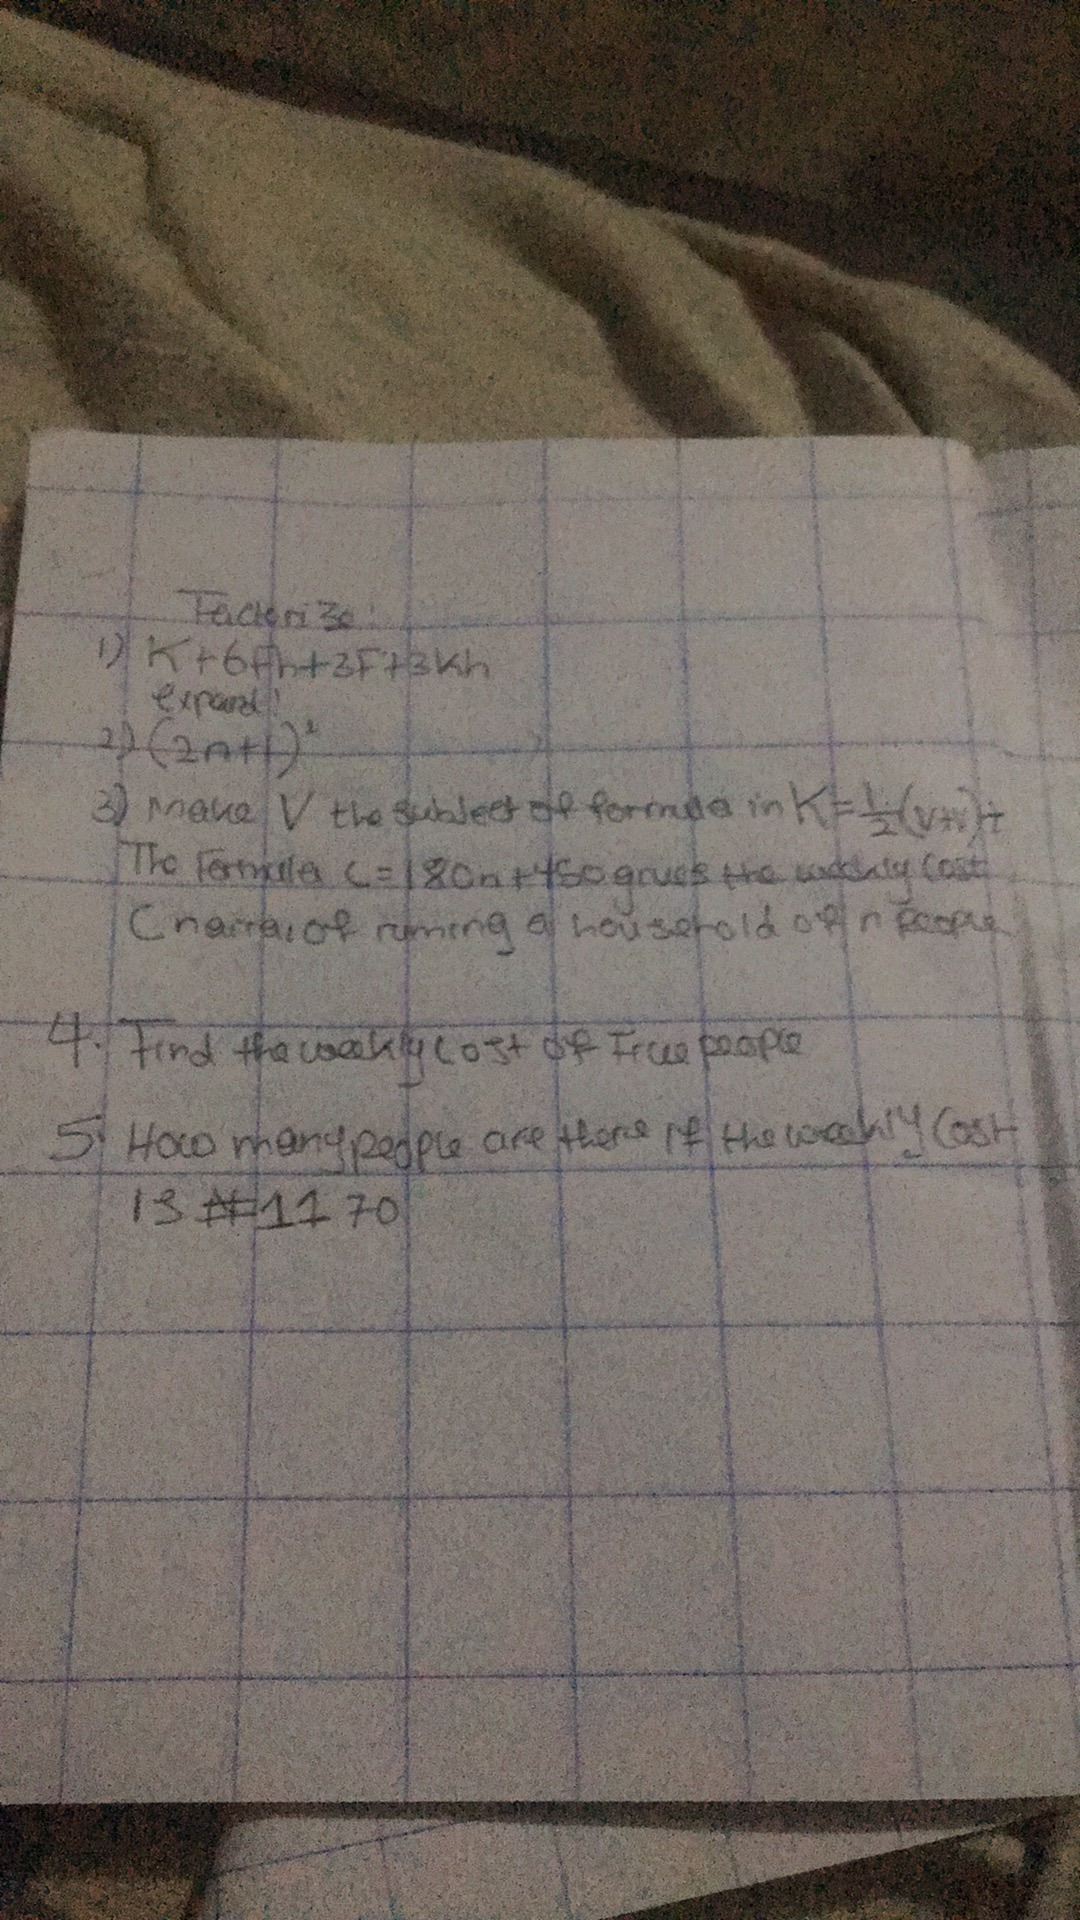 Factorize:
1) K+6Fh+3F+3Kh
expand!
2) (2n+1)²
3) Make V the subject of formula in K=½(v+v)t
The Formula C=180n+450 gives the weekly cost
C naira, of running a household of n people
4. Find the weekly cost of Five people
5. How many people are there if the weekly cost
is ₦1170